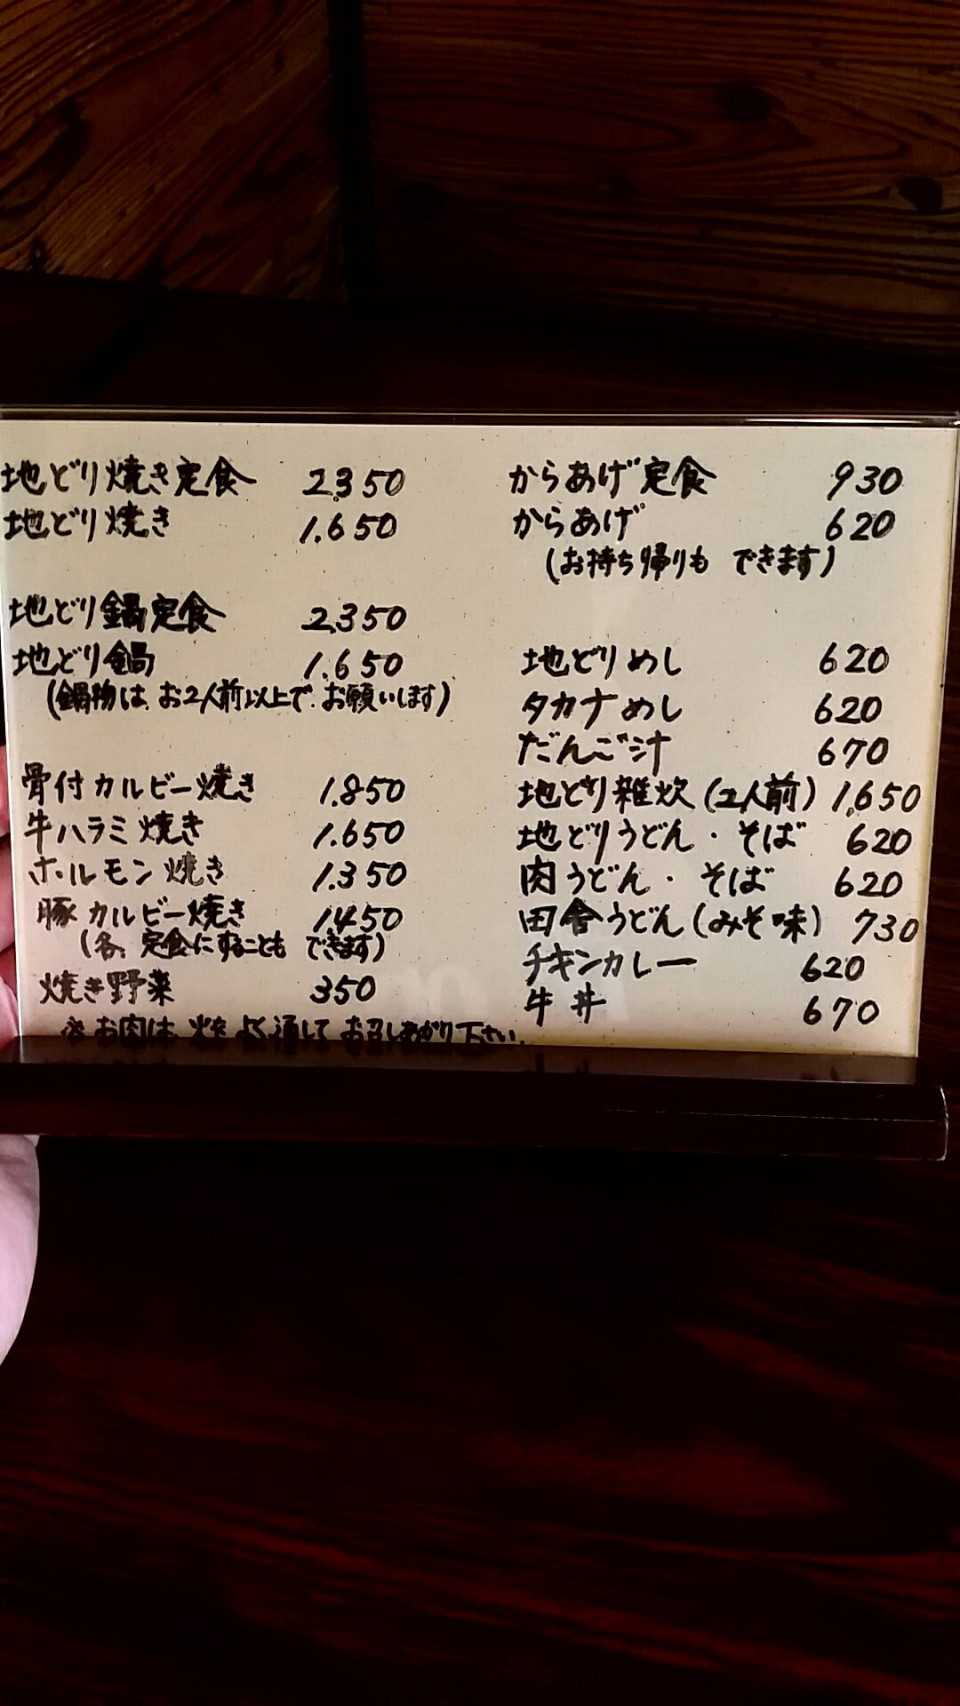 地どり焼き定食 2,350
地どり焼き 1.650
地どり鍋定食 2,350
地どり鍋 1.650
(鍋物は、お2人前以上で、お願いします)
骨付カルビー焼き 1.850
牛ハラミ焼き 1.650
ホルモン焼き 1.350
豚カルビー焼き 1.450
(各、定食にすることも できます)
焼き野菜 350
※お肉は、火をよく通してお召しあがり下さい。
からあげ定食 930
からあげ 620
(お持ち帰りも できます)
地どりめし 620
タカナめし 620
だんご汁 670
地どり雑炊(2人前) 1,650
地どりうどん・そば 620
肉うどん・そば 620
田舎うどん(みそ味) 730
チキンカレー 620
牛丼 670